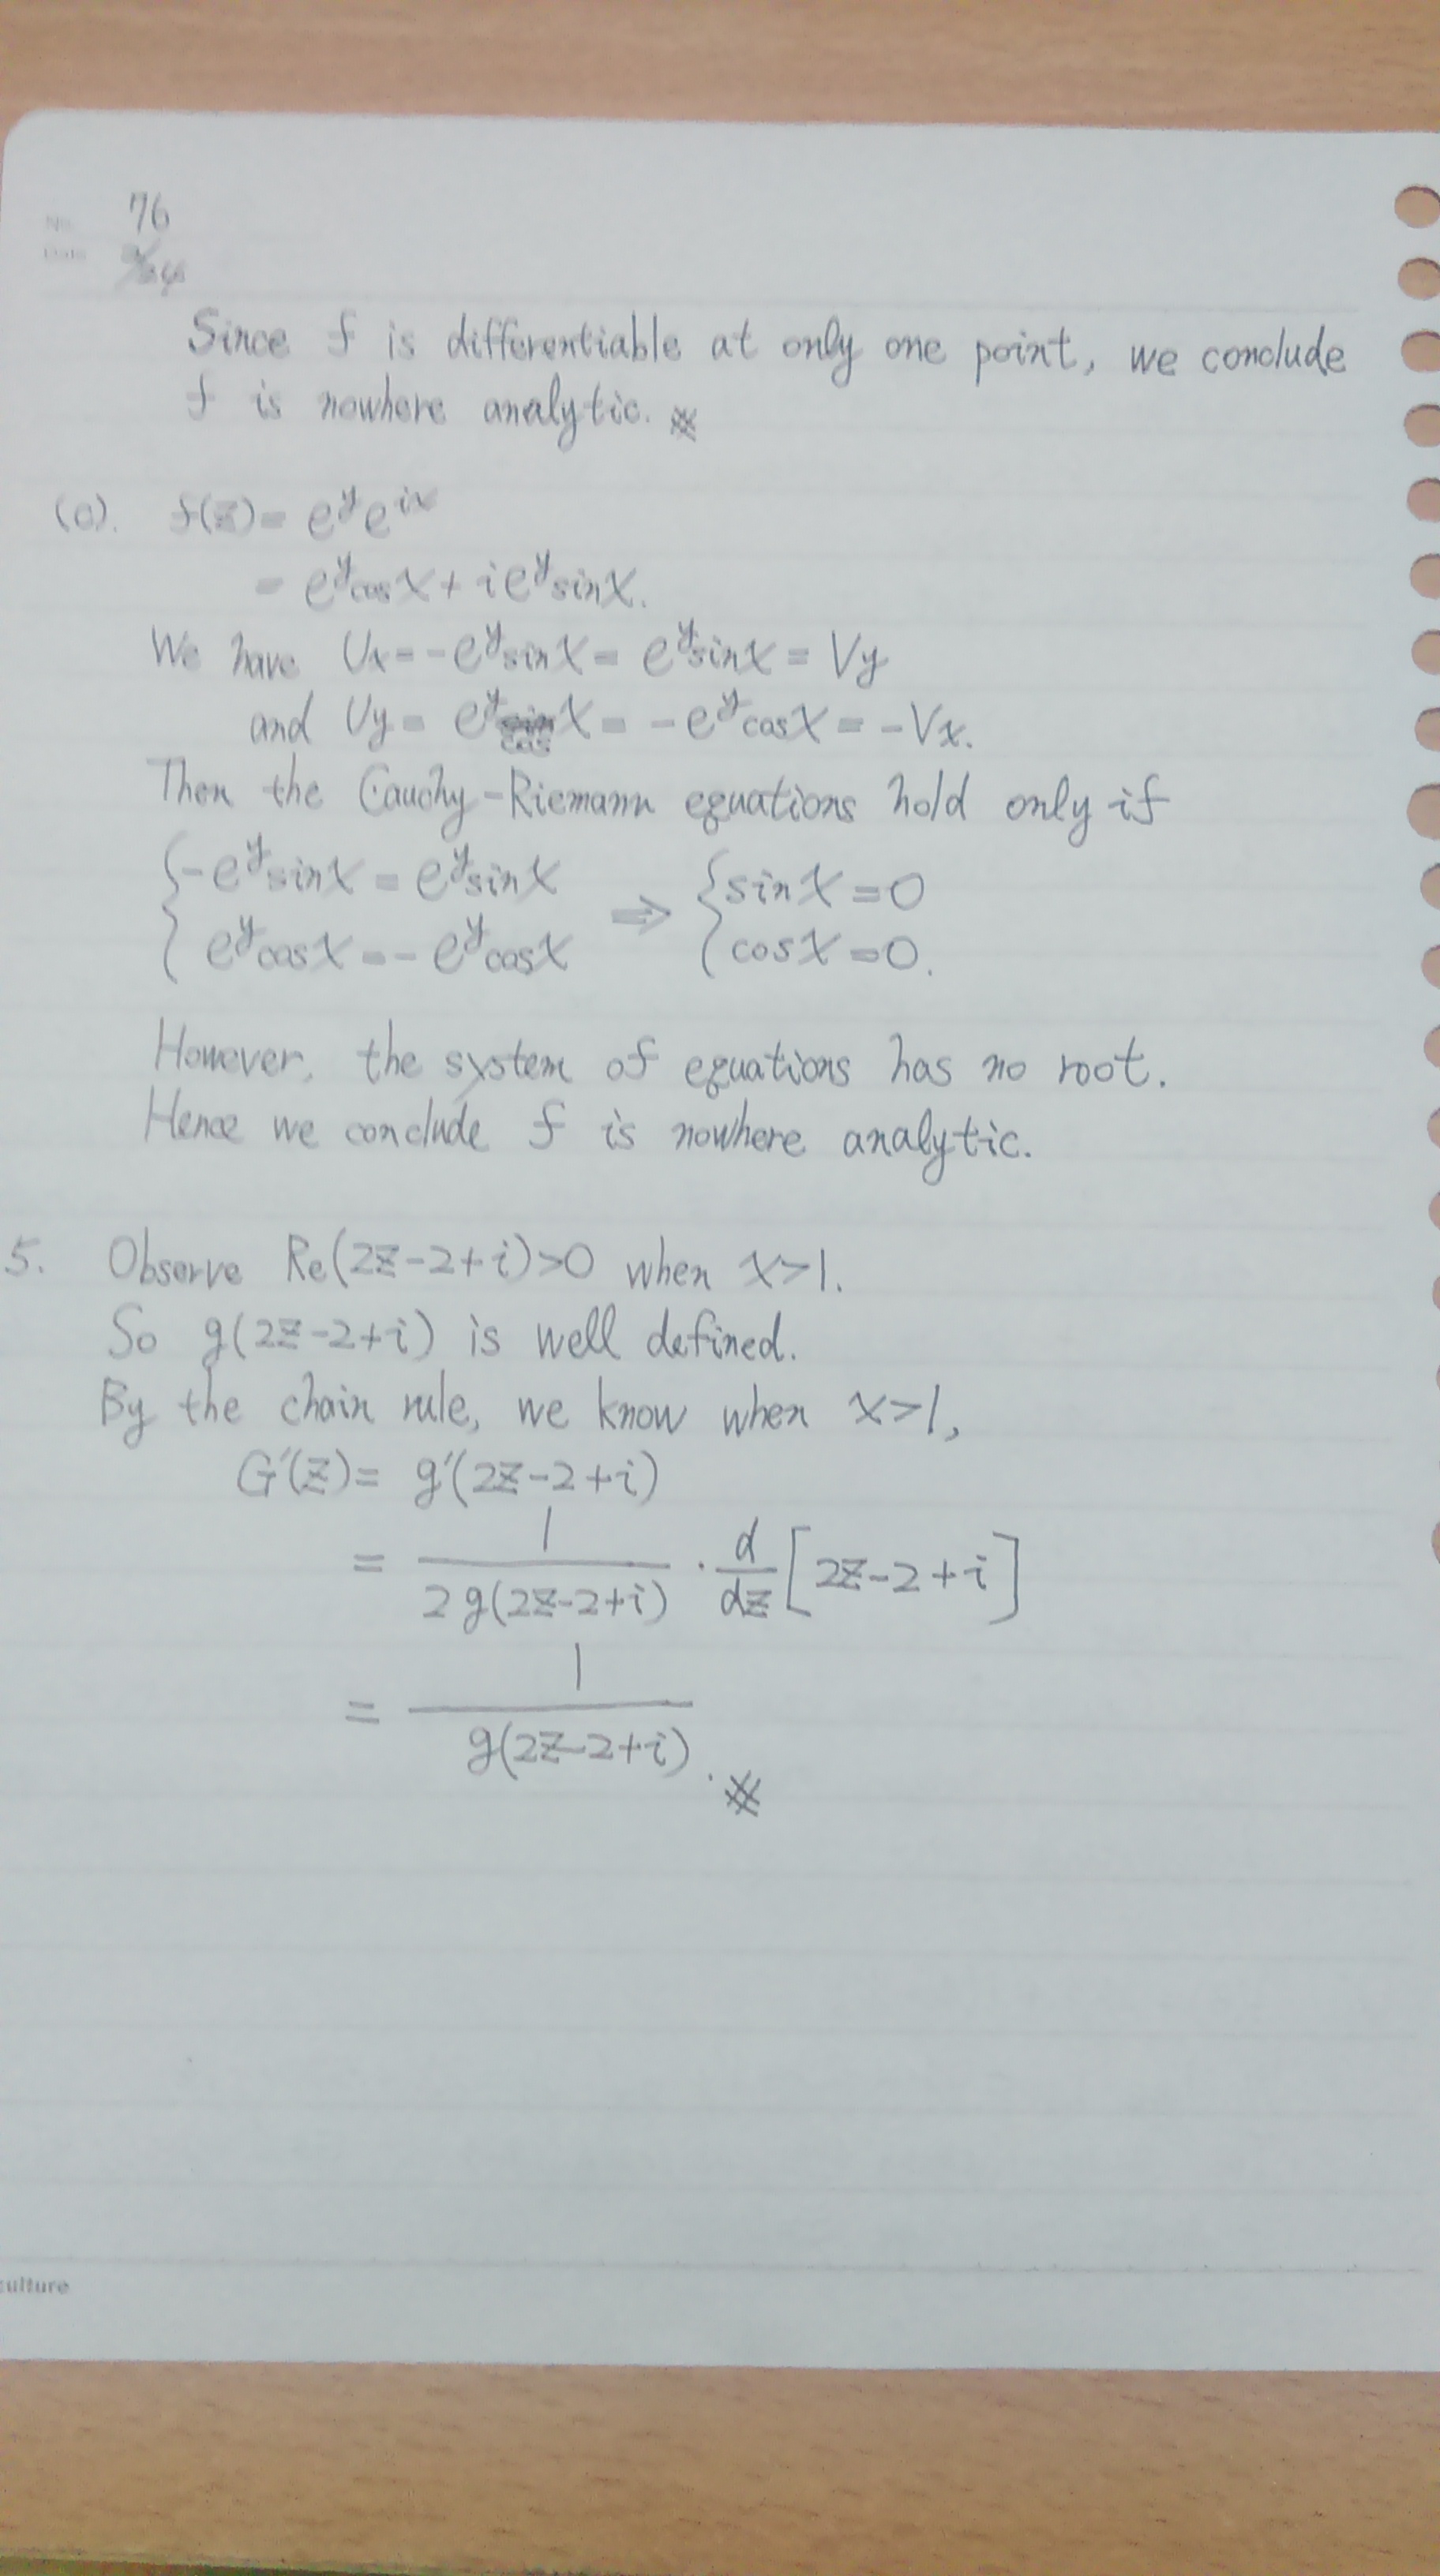 No.
76
Date
Since f is differentiable at only one point, we conclude
f is nowhere analytic. ※
(c). f(z)= e^y e^{ix}
= e^y cos x + i e^y sin x.
We have Ux = -e^y sin x = e^y sin x = Vy
and Uy = e^y cos x = -e^y cos x = -Vx.
Then the Cauchy-Riemann equations hold only if
{ -e^y sin x = e^y sin x ⇒ { sin x = 0
e^y cos x = -e^y cos x cos x = 0.
However, the system of equations has no root.
Hence we conclude f is nowhere analytic.
5. Observe Re(2z-2+i)>0 when x>1.
So g(2z-2+i) is well defined.
By the chain rule, we know when x>1,
G'(z)= g'(2z-2+i)
= 1 / 2g(2z-2+i) · d/dz [2z-2+i]
= 1 / g(2z-2+i) . ※
culture